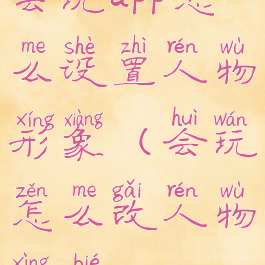 会玩app怎
me shè zhì rén wù
么设置人物
xíng xiàng huì wán
形象（会玩
zěn me gǎi rén wù
怎么改人物
xìng bié